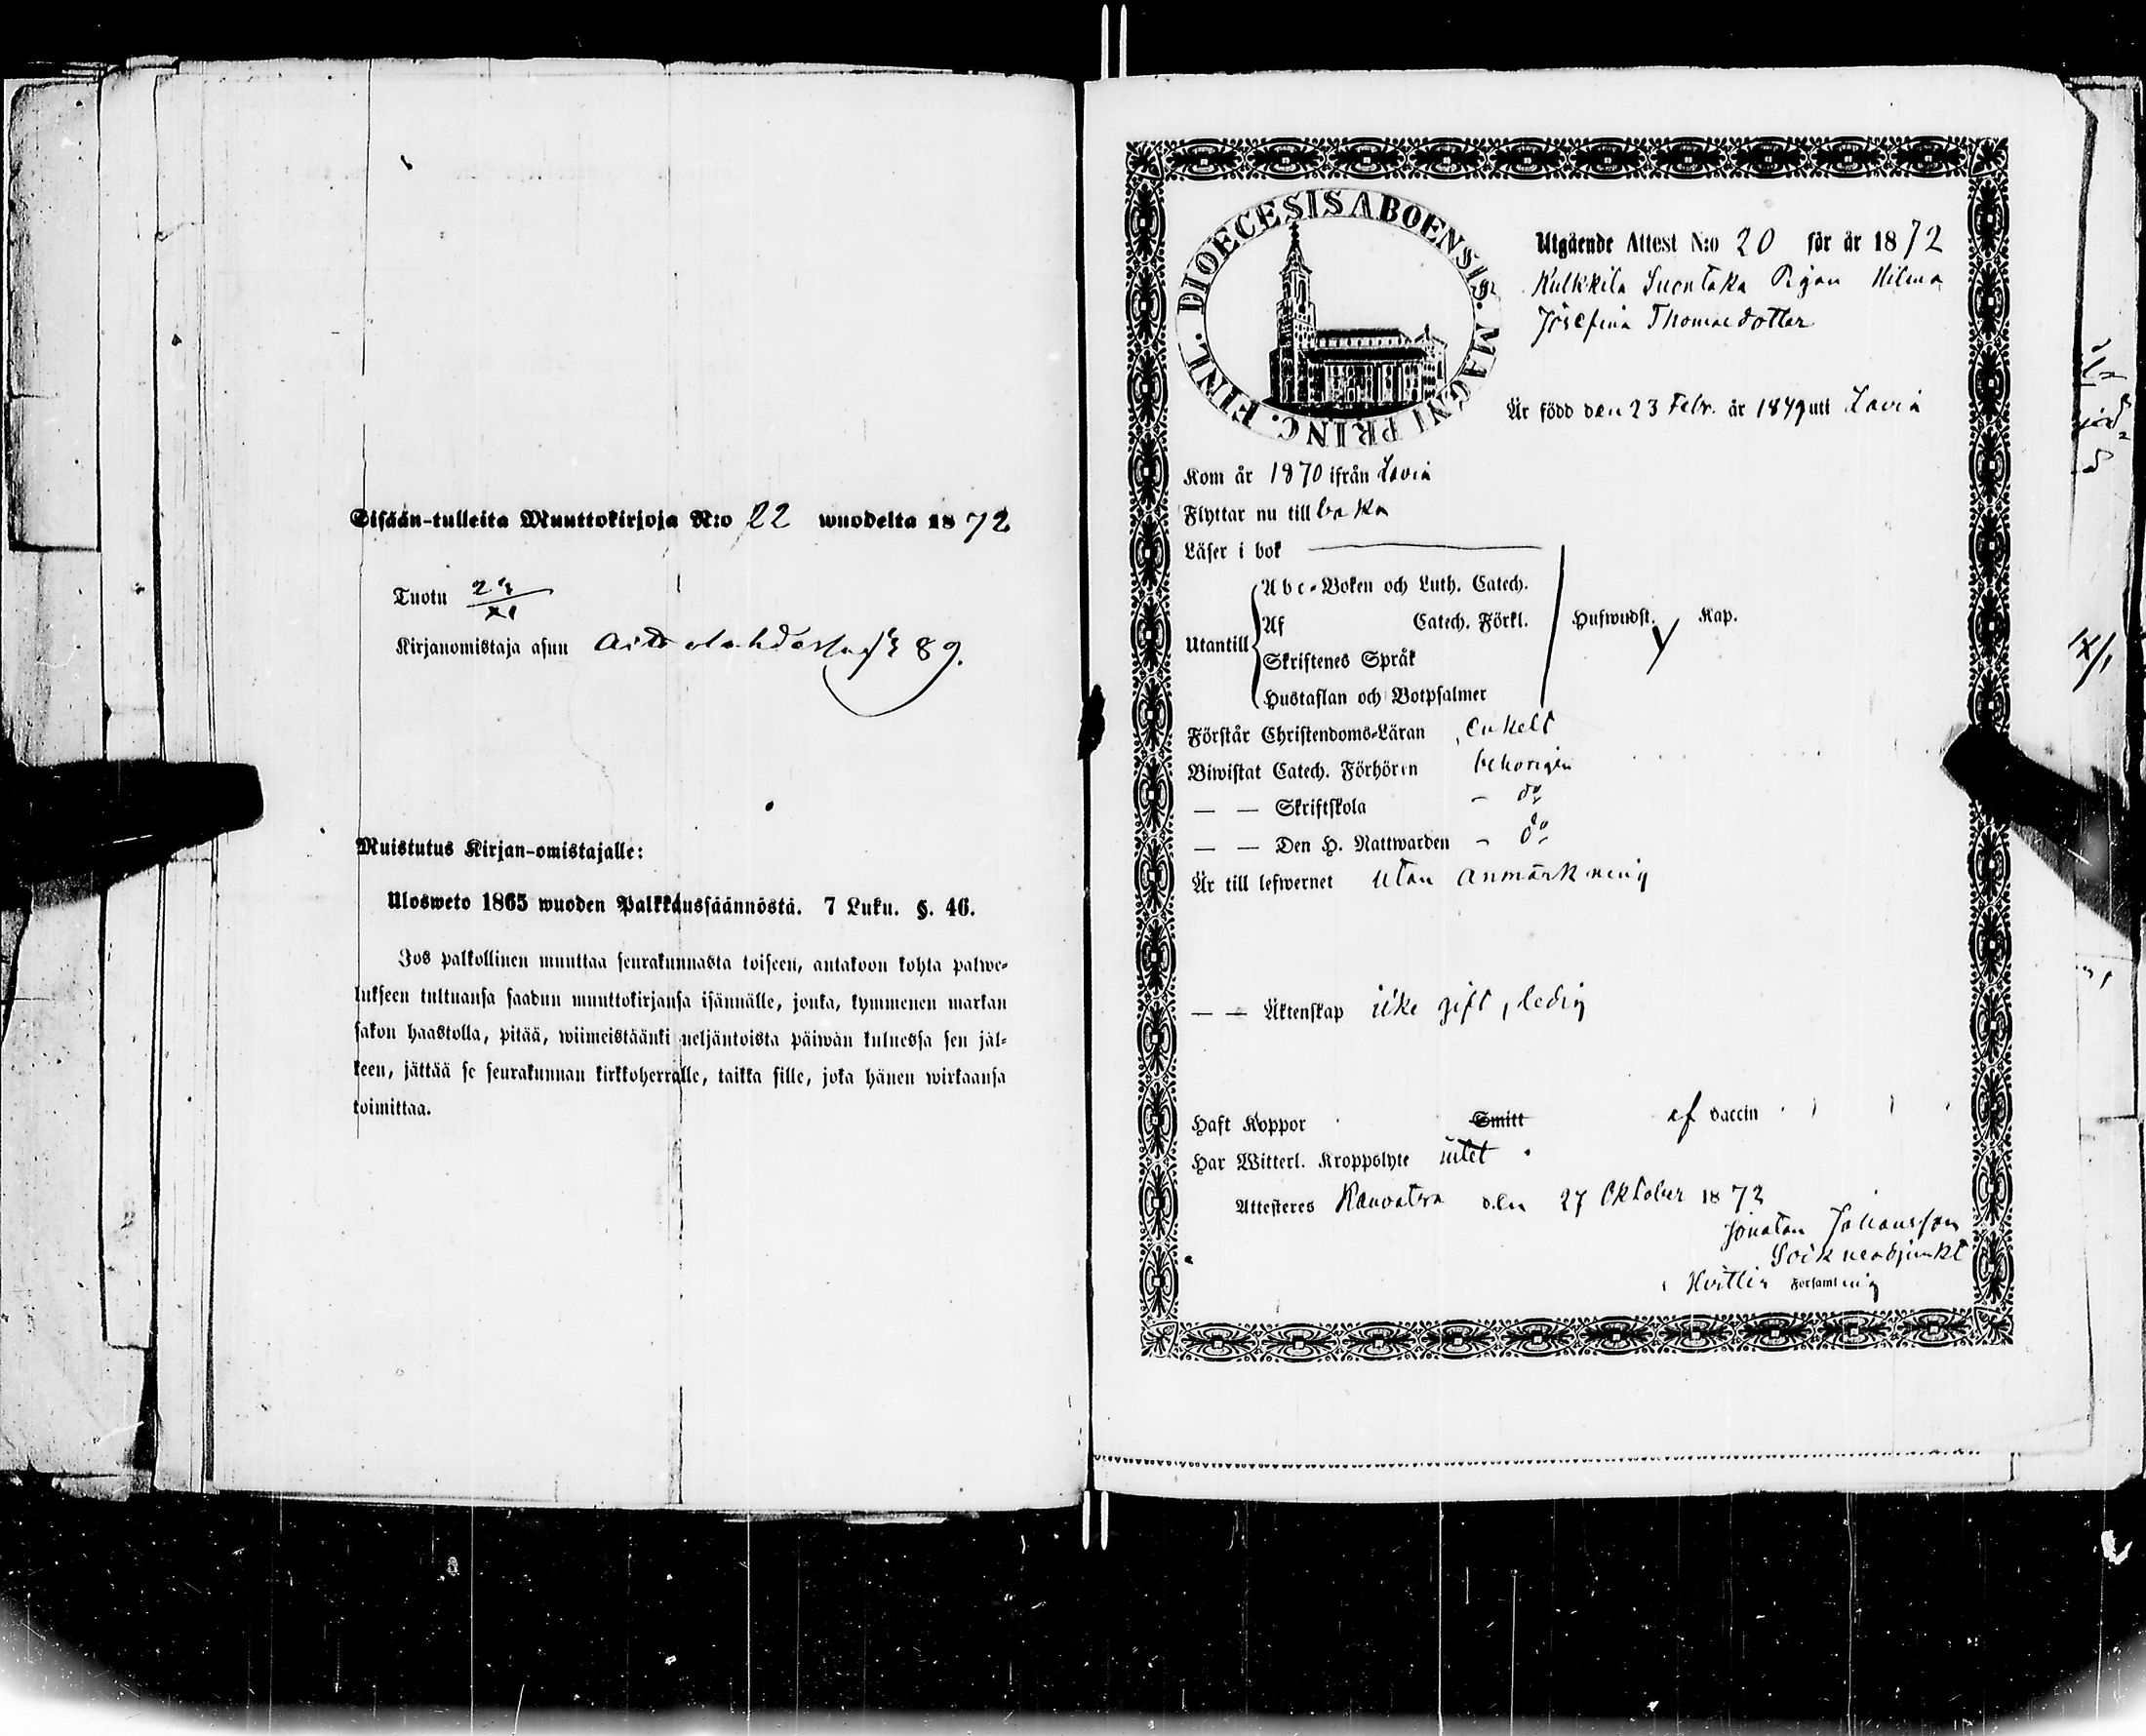 Sisään-tulleita Muuttokirjoja N:o 22 wuodelta 1872
Tuotu
XI
Kirjanomistaja asuu 89.
Muistutus Kirjan-omistajalle:
Ulosweto 1865 wuoden Palkkaussäännöstä. 7 Luku. §. 46.
Jos palkollinen muuttaa seurakunnasta toiseen, antakoon kohta palwe-
lukseen tultuansa saadun muuttokirjansa isännälle, jonka, kymmenen markan
sakon haastolla, pitää, wiimeistäänki neljäntoista päiwän kuluessa sen jäl-
keen, jättää se seurakunnan kirkkoherralle, taikka sille, joka hänen wirkaansa
toimittaa.
DIOECESIS ABOENSIS. MAGNI PRINC. FINL.
Utgående Attest N:o 20 för år 1872
Kulkkila Suontaka Pigan Hilma
Josefina Thomasdotter
Är född den 23 Febr. år 1849 uti Lavia
Kom år 1870 ifrån Lavia
Flyttar nu till baka
Läser i bok
Abc-Boken och Luth. Catech.
Utantill Af Catech. Förkl. Hufwudst. Kap.
Skriftenes Språk
Hustaflan och Botpsalmer
Förstår Christendoms-Läran enkelt
Biwistat Catech. Förhören behörigen
— — Skriftskola - do
— — Den H. Nattwarden - do
Är till lefwernet utan anmärkning
— — Äktenskap icke gift, ledig
Haft Koppor Smitt af vaccin
Har Witterl. Kroppslyte intet
Attesteres Kauvatsa den 27 Oktober 1872
Jonatan Johansson
Sockneadjunkt
i Hvittis Församling